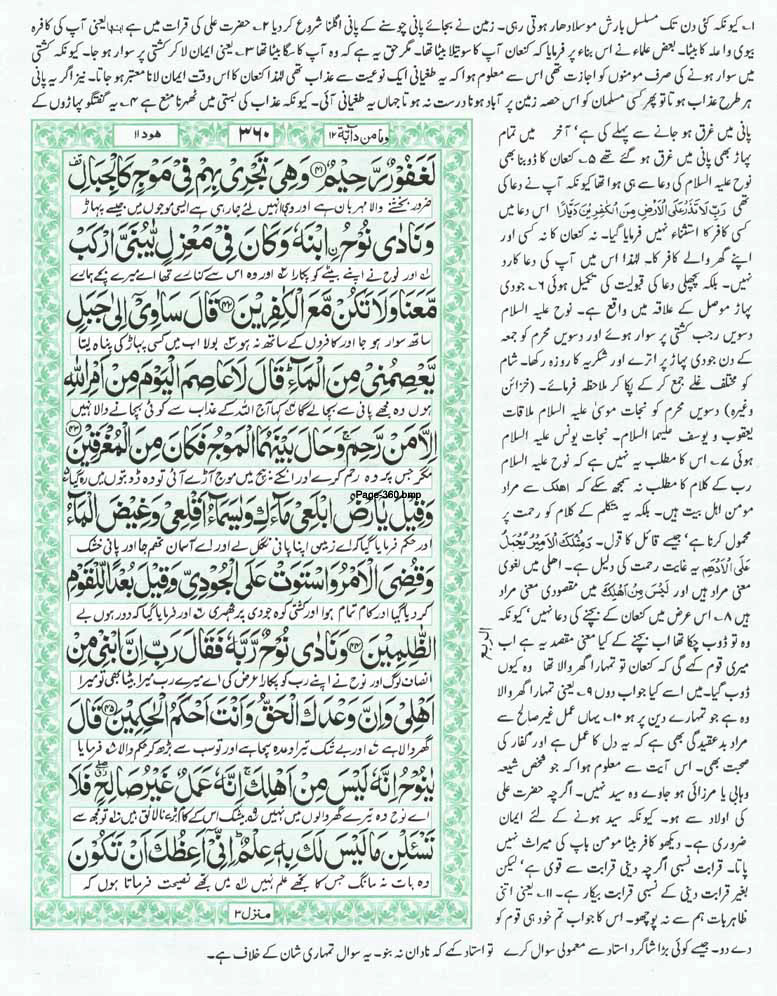 ۱؎ کیونکہ کئی دن تک مسلسل بارش موسلا دھار ہوتی رہی۔ زمین نے بجائے پانی چوسنے کے پانی اگلنا شروع کر دیا ۲؎ حضرت علی کی قرات میں ہے ابنھا یعنی آپ کی کافرہ
بیوی واعلہ کا بیٹا۔ بعض علماء نے اس بناء پر فرمایا کہ کنعان آپ کا سوتیلا بیٹا تھا۔ مگر حق یہ ہے کہ وہ آپ کا سگا بیٹا تھا ۳؎ یعنی ایمان لا کر کشتی پر سوار ہو جا۔ کیونکہ کشتی
میں سوار ہونے کی صرف مومنوں کو اجازت تھی اس سے معلوم ہوا کہ یہ طغیانی ایک نوعیت سے عذاب تھی لہٰذا کنعان کا اس وقت ایمان لانا معتبر ہو جاتا۔ نیز اگر یہ پانی
ہر طرح عذاب ہوتا تو پھر کسی مسلمان کو اس حصہ زمین پر آباد ہونا درست نہ ہوتا جہاں یہ طغیانی آئی۔ کیونکہ عذاب کی بستی میں ٹھہرنا منع ہے ۴؎ یہ گفتگو پہاڑوں کے
پانی میں غرق ہو جانے سے پہلے کی ہے، آخر میں تمام
پہاڑ بھی پانی میں غرق ہو گئے تھے ۵؎ کنعان کا ڈوبنا بھی
نوح علیہ السلام کی دعا سے ہی ہوا تھا کیونکہ آپ نے دعا کی
تھی رَبِّ لَا تَذَرْ عَلَى الْاَرْضِ مِنَ الْكٰفِرِيْنَ دَيَّارًا اس دعا میں
کسی کافر کا استثناء نہیں فرمایا گیا۔ نہ کنعان کا نہ کسی اور
اپنے گھر والے کافر کا۔ لہٰذا اس میں آپ کی دعا کا رد
نہیں۔ بلکہ پچھلی دعا کی قبولیت کی تکمیل ہوئی ۶؎ جودی
پہاڑ موصل کے علاقہ میں واقع ہے۔ نوح علیہ السلام
دسویں رجب کشتی پر سوار ہوئے اور دسویں محرم کو جمعہ
کے دن جودی پہاڑ پر اترے اور شکریہ کا روزہ رکھا۔ شام
کو مختلف غلے جمع کر کے پکا کر ملاحظہ فرمائے۔ (خزائن
وغیرہ) دسویں محرم کو نجات موسیٰ علیہ السلام ملاقات
یعقوب و یوسف علیہما السلام۔ نجات یونس علیہ السلام
ہوئی ۷؎ اس کا مطلب یہ نہیں ہے کہ نوح علیہ السلام
رب کے کلام کا مطلب نہ سمجھ سکے کہ اھلک سے مراد
مومن اہل بیت ہیں۔ بلکہ یہ متکلم کے کلام کو رحمت پر
محمول کرنا ہے، جیسے قائل کا قول۔ وَمِثْلُكَ الْاَمِيْرُ يَحْمِلُ
عَلَى الْاَدْهَمِ یہ غایت رحمت کی دلیل ہے۔ اھلی میں لغوی
معنی مراد ہیں اور لَيْسَ مِنْ اَهْلِكَ میں مقصودی معنی مراد
ہیں ۸؎ اس عرض میں کنعان کے بچنے کی دعا نہیں، کیونکہ
وہ تو ڈوب چکا تھا اب بچنے کے کیا معنی مقصد یہ ہے اب
میری قوم کہے گی کہ کنعان تو تمہارا گھر والا تھا وہ کیوں
ڈوب گیا۔ میں اسے کیا جواب دوں ۹؎ یعنی تمہارا گھر والا
وہ ہے جو تمہارے دین پر ہو ۱۰؎ یہاں عمل غیر صالح سے
مراد بد عقیدگی بھی ہے کہ یہ دل کا عمل ہے اور کفار کی
صحبت بھی۔ اس آیت سے معلوم ہوا کہ جو شخص شیعہ
وہابی یا مرزائی ہو جاوے وہ سید نہیں۔ اگرچہ حضرت علی
کی اولاد سے ہو۔ کیونکہ سید ہونے کے لئے ایمان
ضروری ہے۔ دیکھو کافر بیٹا مومن باپ کی میراث نہیں
پاتا۔ قرابت نسبی اگرچہ دینی قرابت سے قوی ہے، لیکن
بغیر قرابت دینی کے نسبی قرابت بیکار ہے۔ ۱۱؎ یعنی اتنی
ظاہر بات ہم سے نہ پوچھو۔ اس کا جواب تم خود ہی قوم کو
دے دو۔ جیسے کوئی بڑا شاگرد استاد سے معمولی سوال کرے تو استاد کہے کہ نادان نہ بنو۔ یہ سوال تمہاری شان کے خلاف ہے۔
ومامن دآبة ۱۲
۳۶۰
ھود ۱۱
لَغَفُوْرٌ رَّحِيْمٌ ﴿۴۱﴾ وَهِيَ تَجْرِيْ بِهِمْ فِيْ مَوْجٍ كَالْجِبَالِ
ضرور بخشنے والا مہربان ہے اور وہی انہیں لئے جا رہی ہے ایسی موجوں میں جیسے پہاڑ
وَنَادٰى نُوْحُ ابْنَهٗ وَكَانَ فِيْ مَعْزِلٍ يّٰبُنَيَّ ارْكَبْ
اور نوح نے اپنے بیٹے کو پکارا اور وہ اس سے کنارے تھا اے میرے بچے ہمارے
مَّعَنَا وَلَا تَكُنْ مَّعَ الْكٰفِرِيْنَ ﴿۴۲﴾ قَالَ سَاٰوِيْٓ اِلٰى جَبَلٍ
ساتھ سوار ہو جا اور کافروں کے ساتھ نہ ہو بولا اب میں کسی پہاڑ کی پناہ لیتا
يَّعْصِمُنِيْ مِنَ الْمَآءِ قَالَ لَا عَاصِمَ الْيَوْمَ مِنْ اَمْرِ اللّٰهِ
ہوں وہ مجھے پانی سے بچالے گا کہا آج اللہ کے عذاب سے کوئی بچانے والا نہیں
اِلَّا مَنْ رَّحِمَ وَحَالَ بَيْنَهُمَا الْمَوْجُ فَكَانَ مِنَ الْمُغْرَقِيْنَ ﴿۴۳﴾
مگر جس پر وہ رحم کرے اور انکے بیچ میں موج آڑے آئی تو وہ ڈوبتوں میں رہ گیا
Page-360.bmp
وَقِيْلَ يٰٓاَرْضُ ابْلَعِيْ مَآءَكِ وَيٰسَمَآءُ اَقْلِعِيْ وَغِيْضَ الْمَآءُ
اور حکم فرمایا گیا کہ اے زمین اپنا پانی نگل لے اور اے آسمان تھم جا اور پانی خشک
وَقُضِيَ الْاَمْرُ وَاسْتَوَتْ عَلَى الْجُوْدِيِّ وَقِيْلَ بُعْدًا لِّلْقَوْمِ
کر دیا گیا اور کام تمام ہوا اور کشتی کوہ جودی پر ٹھہری اور فرمایا گیا کہ دور ہوں بے
الظّٰلِمِيْنَ ﴿۴۴﴾ وَنَادٰى نُوْحٌ رَّبَّهٗ فَقَالَ رَبِّ اِنَّ ابْنِيْ مِنْ
انصاف لوگ اور نوح نے اپنے رب کو پکارا عرض کی اے میرے رب میرا بیٹا بھی تو میرا
اَهْلِيْ وَاِنَّ وَعْدَكَ الْحَقُّ وَاَنْتَ اَحْكَمُ الْحٰكِمِيْنَ ﴿۴۵﴾ قَالَ
گھر والا ہے اور بے شک تیرا وعدہ سچا ہے اور تو سب سے بڑھ کر حکم والا فرمایا
يٰنُوْحُ اِنَّهٗ لَيْسَ مِنْ اَهْلِكَ اِنَّهٗ عَمَلٌ غَيْرُ صَالِحٍ فَلَا
اے نوح وہ تیرے گھر والوں میں نہیں بیشک اس کے کام بڑے نالائق ہیں تو مجھ سے
تَسْـَٔلْنِ مَا لَيْسَ لَكَ بِهٖ عِلْمٌ اِنِّيْٓ اَعِظُكَ اَنْ تَكُوْنَ
وہ بات نہ مانگ جس کا تجھے علم نہیں میں تجھے نصیحت فرماتا ہوں کہ
منزل ۳